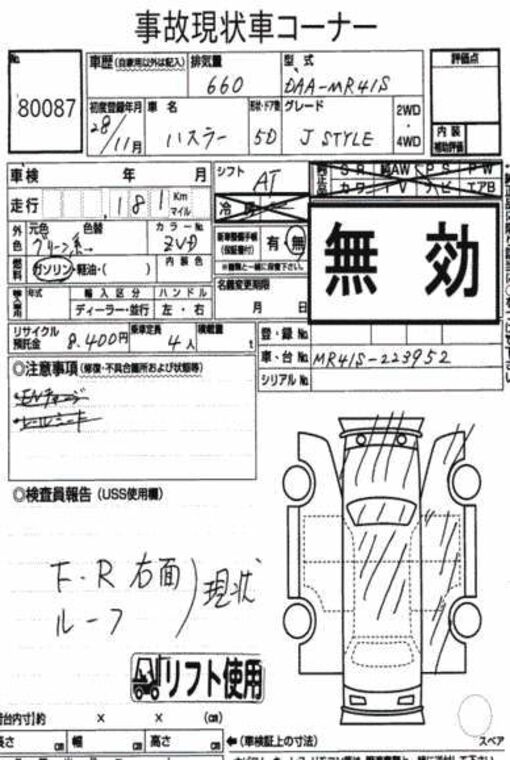 事故現状車コーナー
No.
80087
車歴 (自家用以外は記入)
排気量
660
型式
DAA-MR41S
評価点
初度登録年月
28/11月
車名
ハスラー
形状・ドア数
5D
グレード
J STYLE
2WD
・
4WD
内装
補助評価
車検 年 月
シフト
AT
純正品
SR 純AW PS PW
カワ TV ナビ エアB
走行
181 Km
マイル
外色
元色 色替
グリーン系→
カラーNo.
ZVD
新車整備手帳
(保証書付)
有・無
※書類と一緒に保管下さい。
無効
燃料
ガソリン・軽油・( )
内装色
名義変更期限
月 日
輸入車用
年式
輸入区分
ディーラー・並行
ハンドル
左・右
リサイクル
預託金
8.400円
乗車定員
4人
積載量
t
登・録No.
車・台No.
MR41S-223952
シリアルNo.
◎注意事項 (修復・不具合箇所および状態等)
・ENチャージ
・レールシート
◎検査員報告 (USS使用欄)
F・R 右面
ルーフ
現状
リフト使用
荷台内寸]約 × × (㎝)
長さ ㎝ 幅 ㎝ 高さ ㎝
←(車検証上の寸法)
スペア